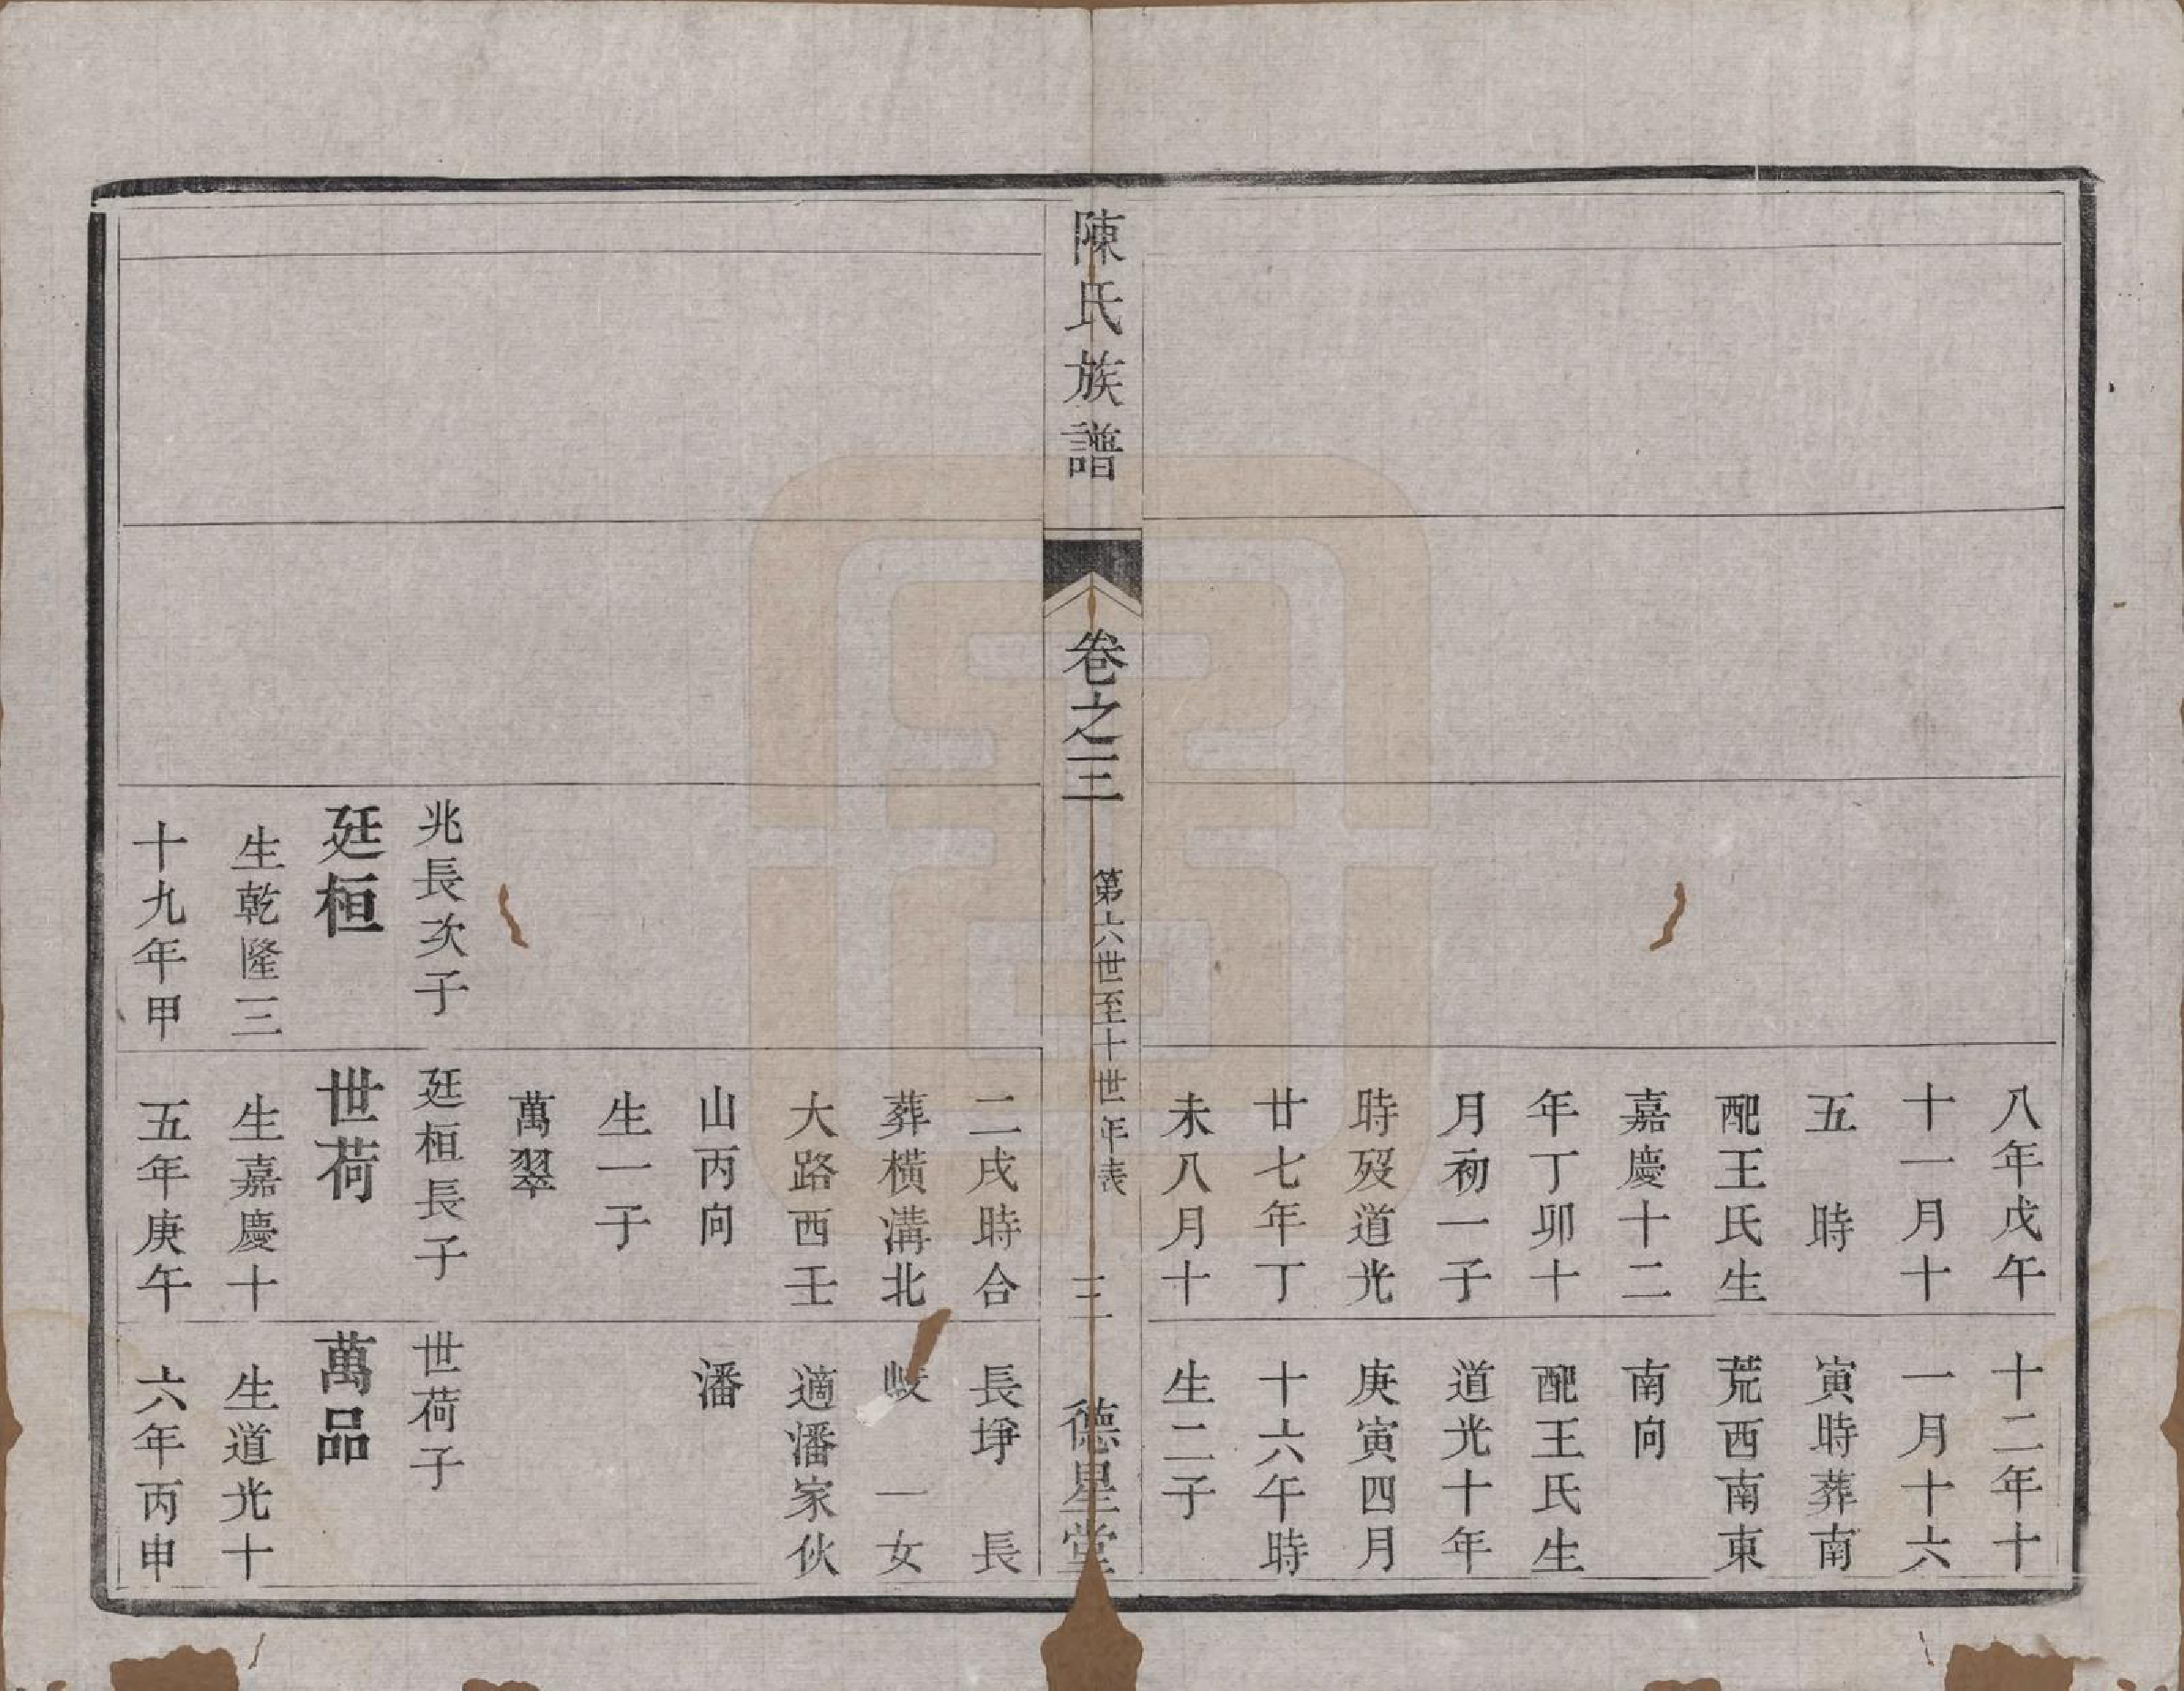 八年戊午
十一月十
五　時
配王氏生
嘉慶十二
年丁卯十
月初一子
時歿道光
廿七年丁
未八月十
十二年十
一月十六
寅時葬南
荒西南東
南向
配王氏生
道光十年
庚寅四月
十六午時
生二子
陳氏族譜
卷之三
第六世至十世年表
三
德星堂
二戌時合
葬橫溝北
大路西壬
山丙向
生一子
萬翠
長埩　長
岐　一女
適潘家伙
潘
兆長次子
廷桓
生乾隆三
十九年甲
廷桓長子
世荷
生嘉慶十
五年庚午
世荷子
萬品
生道光十
六年丙申